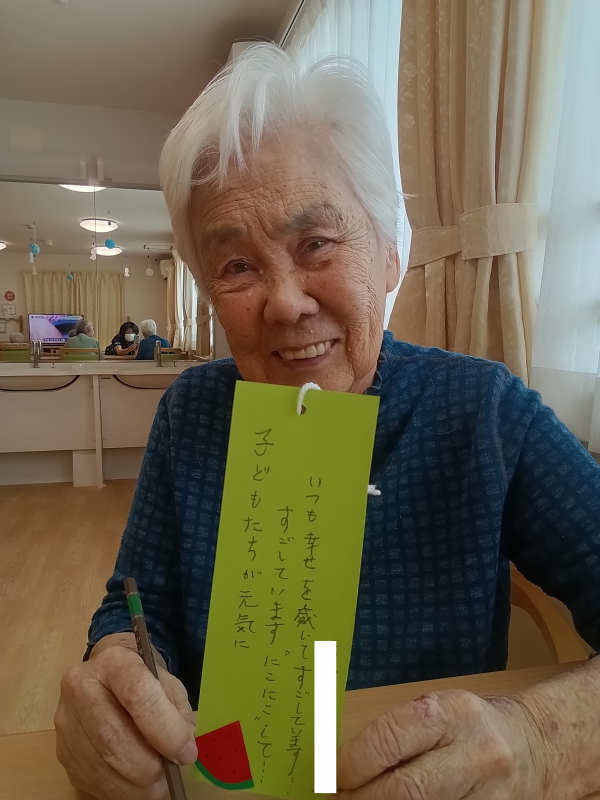 いつも幸せを感じてすごしています。
すごしています"にこにこ"して…
子どもたちが元気に